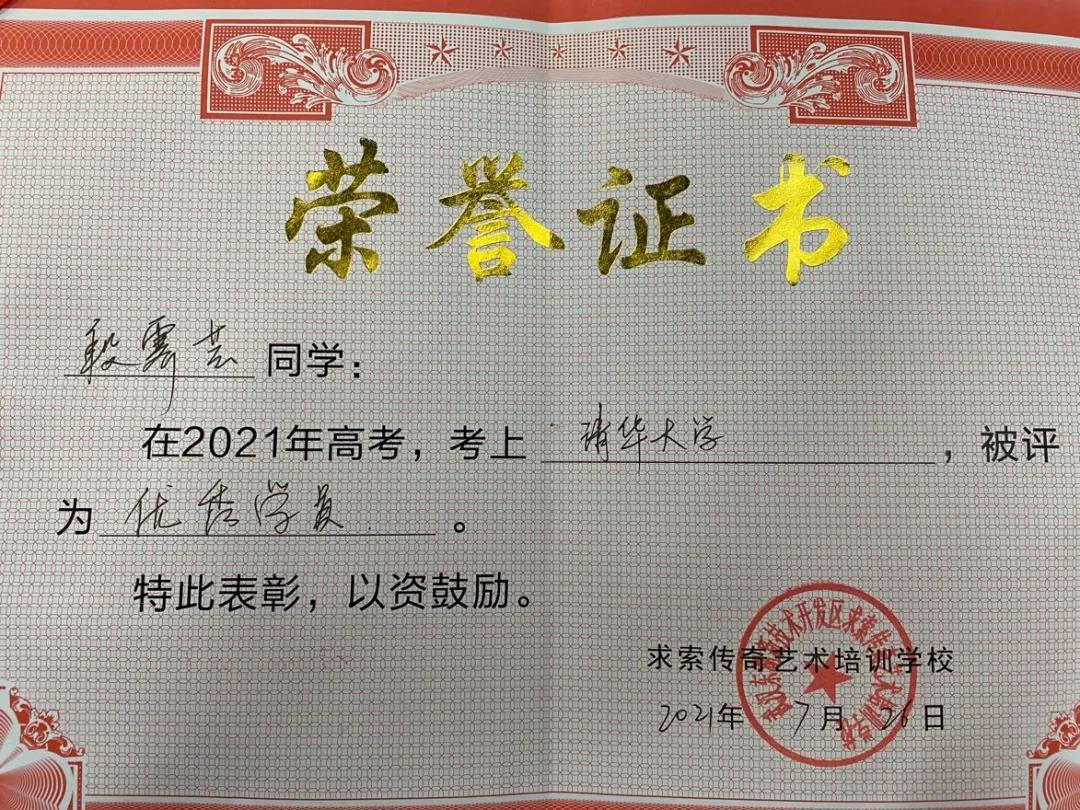 荣誉证书
段霁芸同学：
在2021年高考，考上清华大学，被评
为优秀学员。
特此表彰，以资鼓励。
求索传奇艺术培训学校
2021年7月26日
武汉东湖新技术开发区求索传奇艺术培训学校